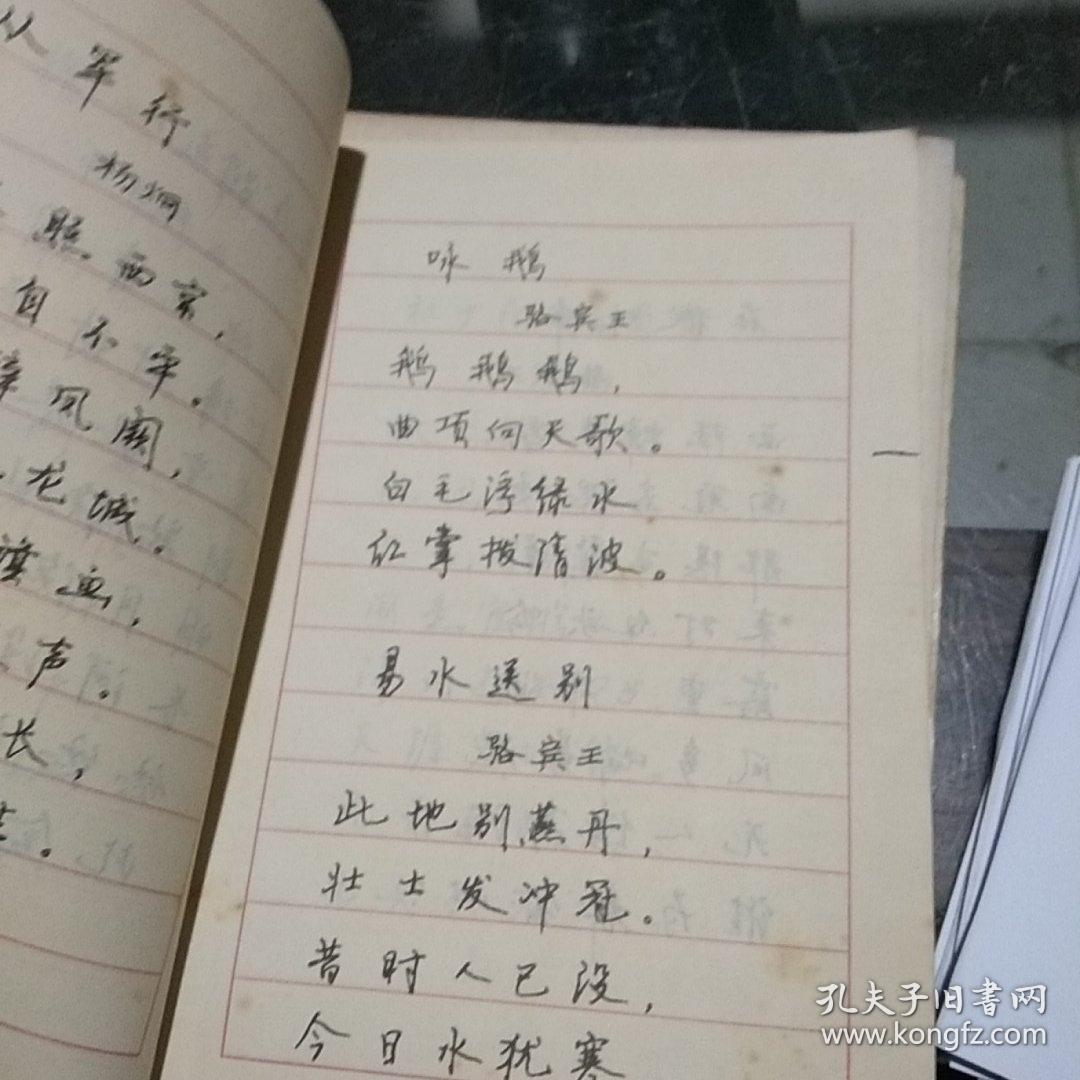 从军行
杨炯
照西京，
自不平。
辞凤阙，
龙城。
旗画，
声。
长，
咏鹅
骆宾王
鹅鹅鹅，
曲项向天歌。
白毛浮绿水
红掌拨清波。
易水送别
骆宾王
此地别燕丹，
壮士发冲冠。
昔时人已没，
今日水犹寒
孔夫子旧书网
www.kongfz.com